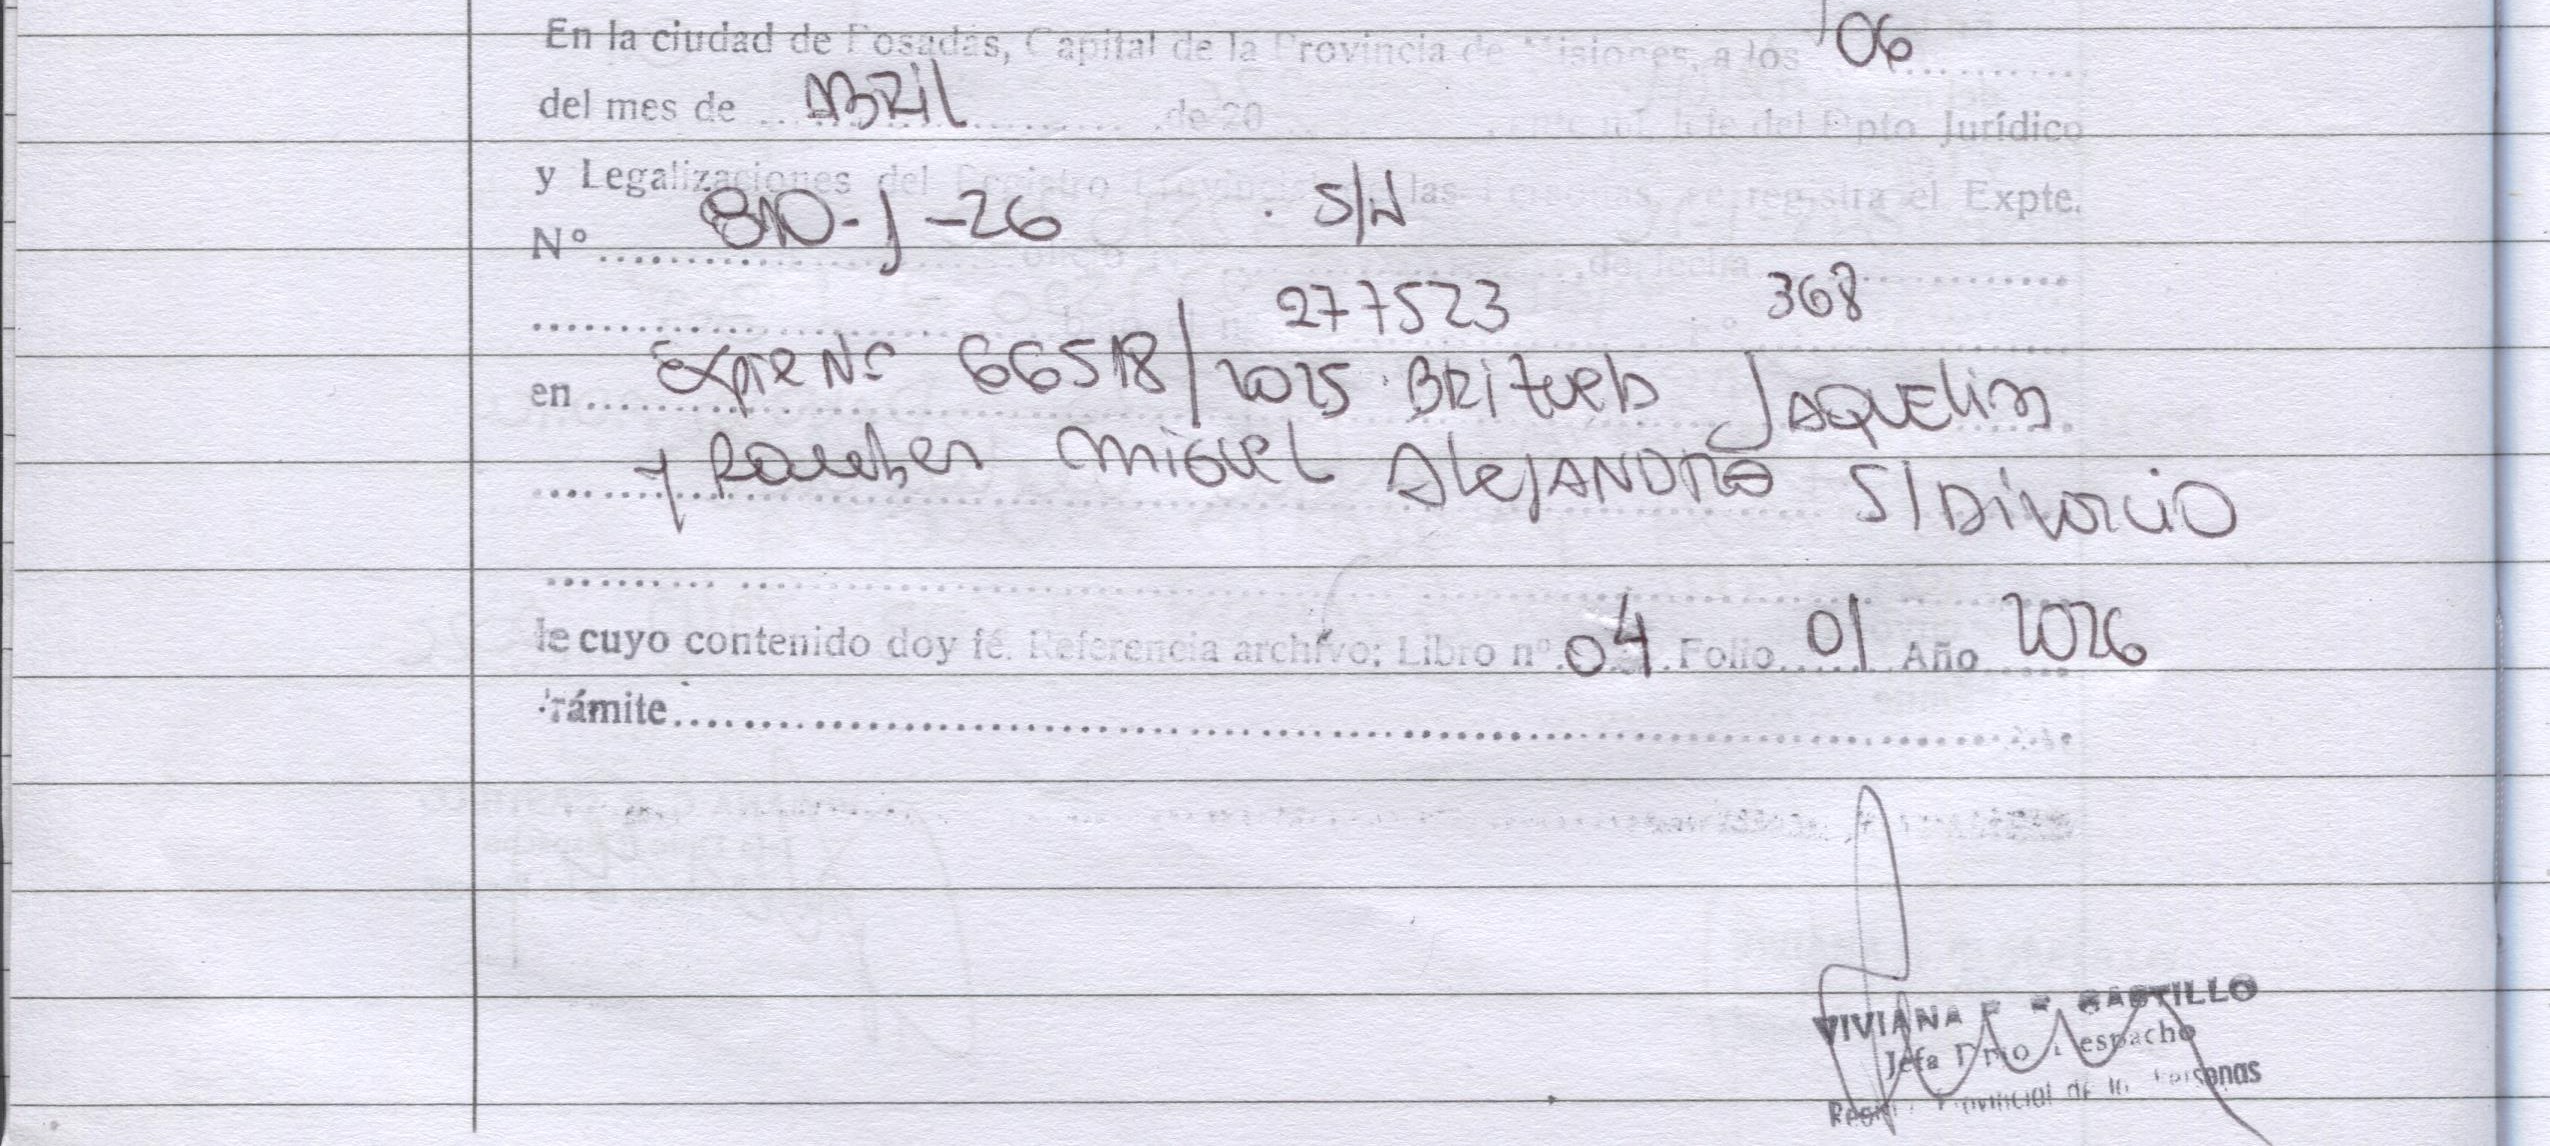 En la ciudad de Posadas, Capital de la Provincia de Misiones, a los 06
del mes de ABRil de 20 Jefe del Dpto Jurídico
y Legalizaciones del Registro Provincial de las Personas, se registra el Expte.
Nº 810-J-26 . S/N de fecha
277523 368
en Expte Nº 66518/2025 BRITueb JAQUElin
y Miguel AlejANDRo S/Divorcio
de cuyo contenido doy fé. Referencia archivo: Libro nº 04 Folio 01 Año 2026
Trámite
VIVIANA CASTILLO
Jefa Dpto Despacho
Registro Provincial de las Personas